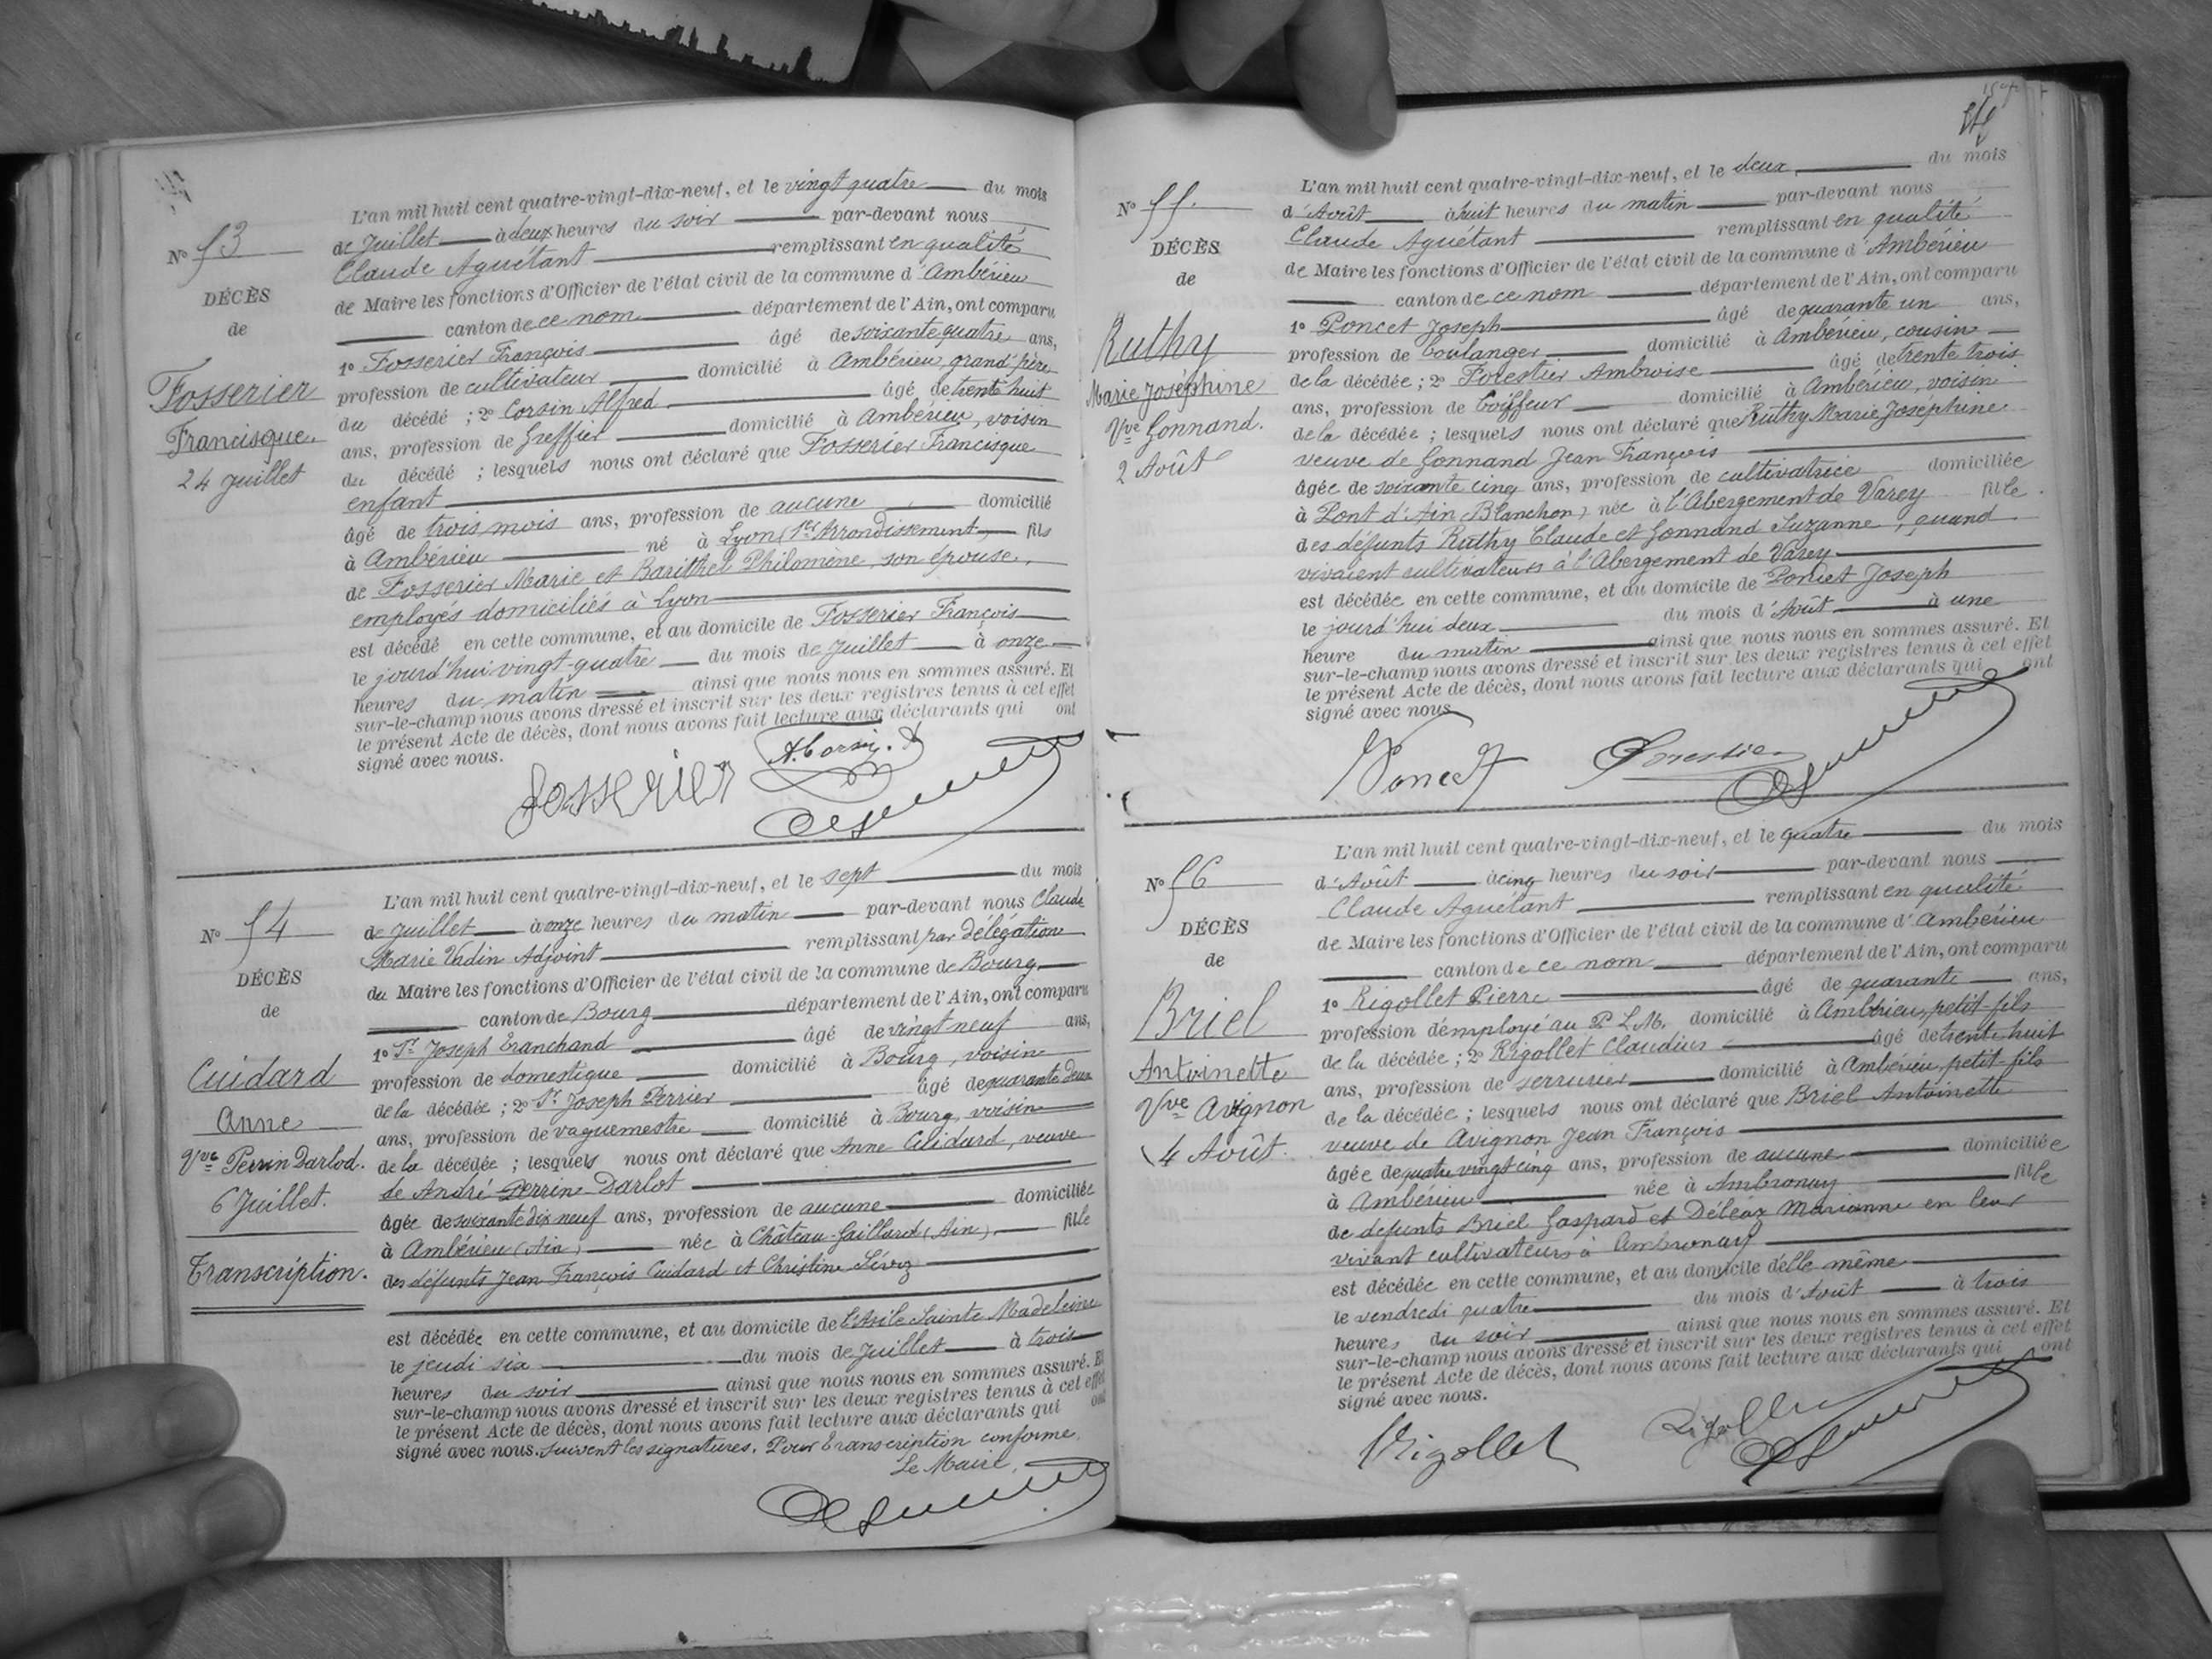 L'an mil huit cent quatre-vingt-dix-neuf, et le vingt quatre du mois
de Juillet à deux heures du soir par-devant nous
Claude Aguétant remplissant en qualité
de Maire les fonctions d'Officier de l'état civil de la commune d'Ambérieu
canton de ce nom département de l'Ain, ont comparu
1º Fosserier François âgé de soixante quatre ans,
profession de cultivateur domicilié à Ambérieu, grand'père
du décédé ; 2º Corsin Alfred âgé de trente huit
ans, profession de Greffier domicilié à Ambérieu, voisin
du décédé ; lesquels nous ont déclaré que Fosserier Francisque
enfant
âgé de trois mois ans, profession de aucune domicilié
à Ambérieu né à Lyon (1er Arrondissement) fils
de Fosserier Marie et Barithel Philomène, son épouse,
employés domiciliés à Lyon
est décédé en cette commune, et au domicile de Fosserier François
le jourd'hui vingt-quatre du mois de Juillet à onze
heures du matin ainsi que nous nous en sommes assuré. Et
sur-le-champ nous avons dressé et inscrit sur les deux registres tenus à cet effet
le présent Acte de décès, dont nous avons fait lecture aux déclarants qui ont
signé avec nous.
Nº 53
DÉCÈS
de
Fosserier
Francisque
24 Juillet
Fosserier A. Corsin
L'an mil huit cent quatre-vingt-dix-neuf, et le sept du mois
de Juillet à onze heures du matin par-devant nous Claude
Marie Vadin Adjoint remplissant par délégation
du Maire les fonctions d'Officier de l'état civil de la commune de Bourg
canton de Bourg département de l'Ain, ont comparu
1º Sr Joseph Tranchand âgé de vingt neuf ans,
profession de domestique domicilié à Bourg, voisin
de la décédée ; 2º Sr Joseph Perrier âgé de quarante deux
ans, profession de vaguemestre domicilié à Bourg, voisin
de la décédée ; lesquels nous ont déclaré que Anne Cuidard, veuve
de André Perrin Darlot
âgée de soixante dix neuf ans, profession de aucune domiciliée
à Ambérieu (Ain) née à Château-Gaillard (Ain) fille
des défunts Jean François Cuidard et Christine
est décédée en cette commune, et au domicile de l'Asile Sainte Madeleine
le jeudi six du mois de Juillet à trois
heures du soir ainsi que nous nous en sommes assuré. Et
sur-le-champ nous avons dressé et inscrit sur les deux registres tenus à cet effet
le présent Acte de décès, dont nous avons fait lecture aux déclarants qui ont
signé avec nous. Suivent les signatures. Pour transcription conforme.
Le Maire,
Nº 54
DÉCÈS
de
Cuidard
Anne
Vve Perrin Darlod.
6 Juillet.
Transcription.
L'an mil huit cent quatre-vingt-dix-neuf, et le deux du mois
d'Août à huit heures du matin par-devant nous
Claude Aguétant remplissant en qualité
de Maire les fonctions d'Officier de l'état civil de la commune d'Ambérieu
canton de ce nom département de l'Ain, ont comparu
1º Poncet Joseph âgé de quarante un ans,
profession de boulanger domicilié à Ambérieu, cousin
de la décédée ; 2º Forestier Ambroise âgé de trente trois
ans, profession de Coiffeur domicilié à Ambérieu, voisin
de la décédée ; lesquels nous ont déclaré que Ruthy Marie Joséphine
veuve de Gonnand Jean François
âgée de soixante cinq ans, profession de cultivatrice domiciliée
à Pont d'Ain (Blanchon) née à l'Abergement de Varey fille
des défunts Ruthy Claude et Gonnand Suzanne, quand
vivaient cultivateurs à l'Abergement de Varey
est décédée en cette commune, et au domicile de Poncet Joseph
le jourd'hui deux du mois d'Août à une
heure du matin ainsi que nous nous en sommes assuré. Et
sur-le-champ nous avons dressé et inscrit sur les deux registres tenus à cet effet
le présent Acte de décès, dont nous avons fait lecture aux déclarants qui ont
signé avec nous
Nº 55.
DÉCÈS
de
Ruthy
Marie Joséphine
Vve Gonnand.
2 Août
Poncet Forestier
L'an mil huit cent quatre-vingt-dix-neuf, et le quatre du mois
d'Août à cinq heures du soir par-devant nous
Claude Aguétant remplissant en qualité
de Maire les fonctions d'Officier de l'état civil de la commune d'Ambérieu
canton de ce nom département de l'Ain, ont comparu
1º Rigollet Pierre âgé de quarante ans,
profession d'employé au P. L. M. domicilié à Ambérieu, petit-fils
de la décédée ; 2º Rigollet Claudius âgé de trente huit
ans, profession de serrurier domicilié à Ambérieu, petit-fils
de la décédée ; lesquels nous ont déclaré que Briel Antoinette
veuve de Avignon Jean François
âgée de quatre vingt cinq ans, profession de aucune domiciliée
à Ambérieu née à Ambronay fille
de défunts Briel Gaspard et Déléaz Marianne en leur
vivant cultivateurs à Ambronay
est décédée en cette commune, et au domicile d'elle même
le vendredi quatre du mois d'Août à trois
heures du soir ainsi que nous nous en sommes assuré. Et
sur-le-champ nous avons dressé et inscrit sur les deux registres tenus à cet effet
le présent Acte de décès, dont nous avons fait lecture aux déclarants qui ont
signé avec nous.
Nº 56
DÉCÈS
de
Briel
Antoinette
Vve Avignon
4 Août.
Rigollet Rigollet